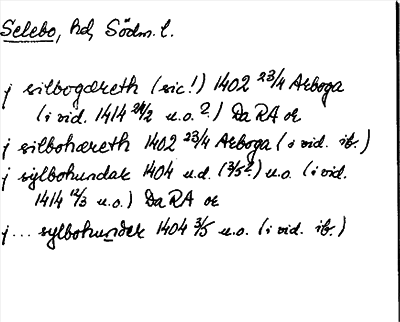 Selebo, hd, Södm. l.
j silbogæreth (sic!) 1402 23/4 Arboga
(i vid. 1414 24/2 u.o.?) Da RA or
j silbohæreth 1402 23/4 Arboga (i vid. ib.)
j sylbohundar 1404 u.d. (3/5?) u.o. (i vid.
1414 12/3 u.o.) Da RA or
j ... sylbohundar 1404 3/5 u.o. (i vid. ib.)